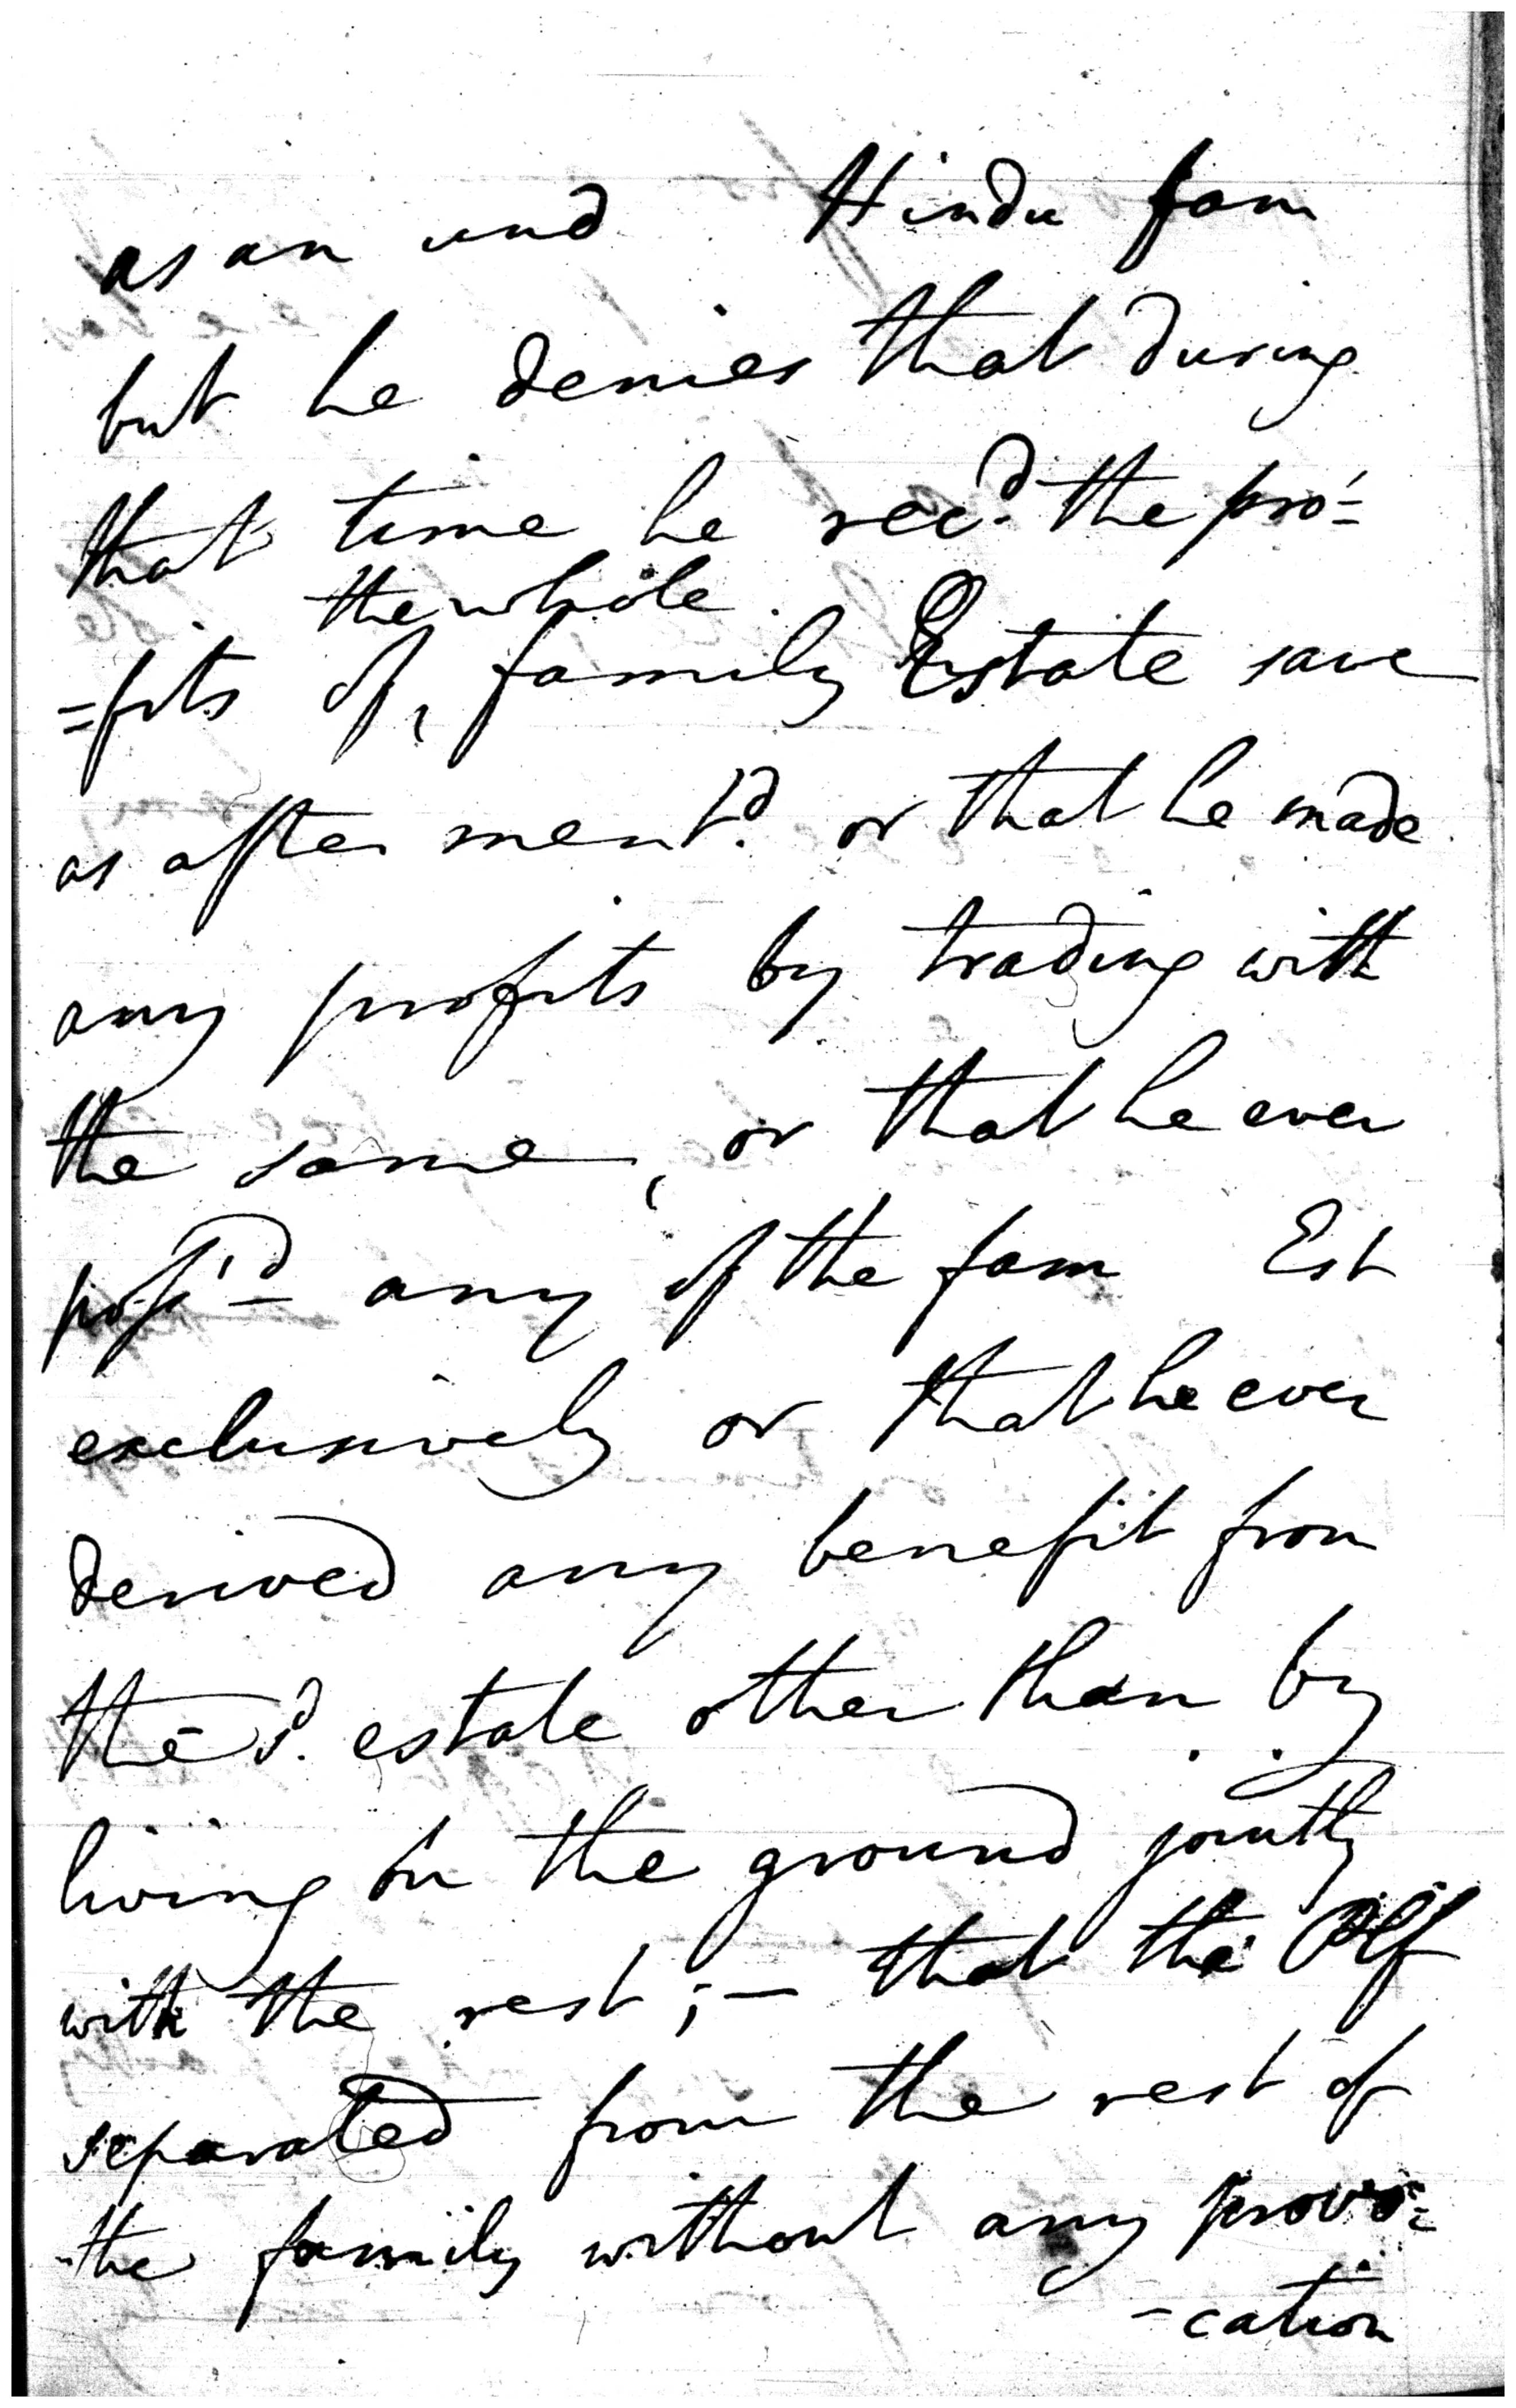 as an und Hindu fam
but he denies that during
that time he rec.d the pro=
the whole
=fits of, family Estate save
as after ment.d or that he made
any profits by trading with
the same, or that he ever
poss'd any of the fam Est
exclusively or that he ever
derived any benefit from
the s.d estate other than by
living on the ground jointly
with the rest; — that the Plf
separated from the rest of
the family without any provo=
-cation